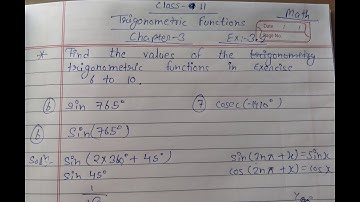 Class-11
Math
Trigonometric Functions
Chapter-3 Ex:-3.
Date / /
Page No.
* Find the values of the trigonometry
trigonometric functions in Exercise
6 to 10.
⑥ sin 765° ⑦ cosec(-1410°)
⑥ Sin(765°)
Sol:- sin(2×360°+45°) sin(2nπ+x)=sinx
sin 45° cos(2nπ+x)=cosx
1